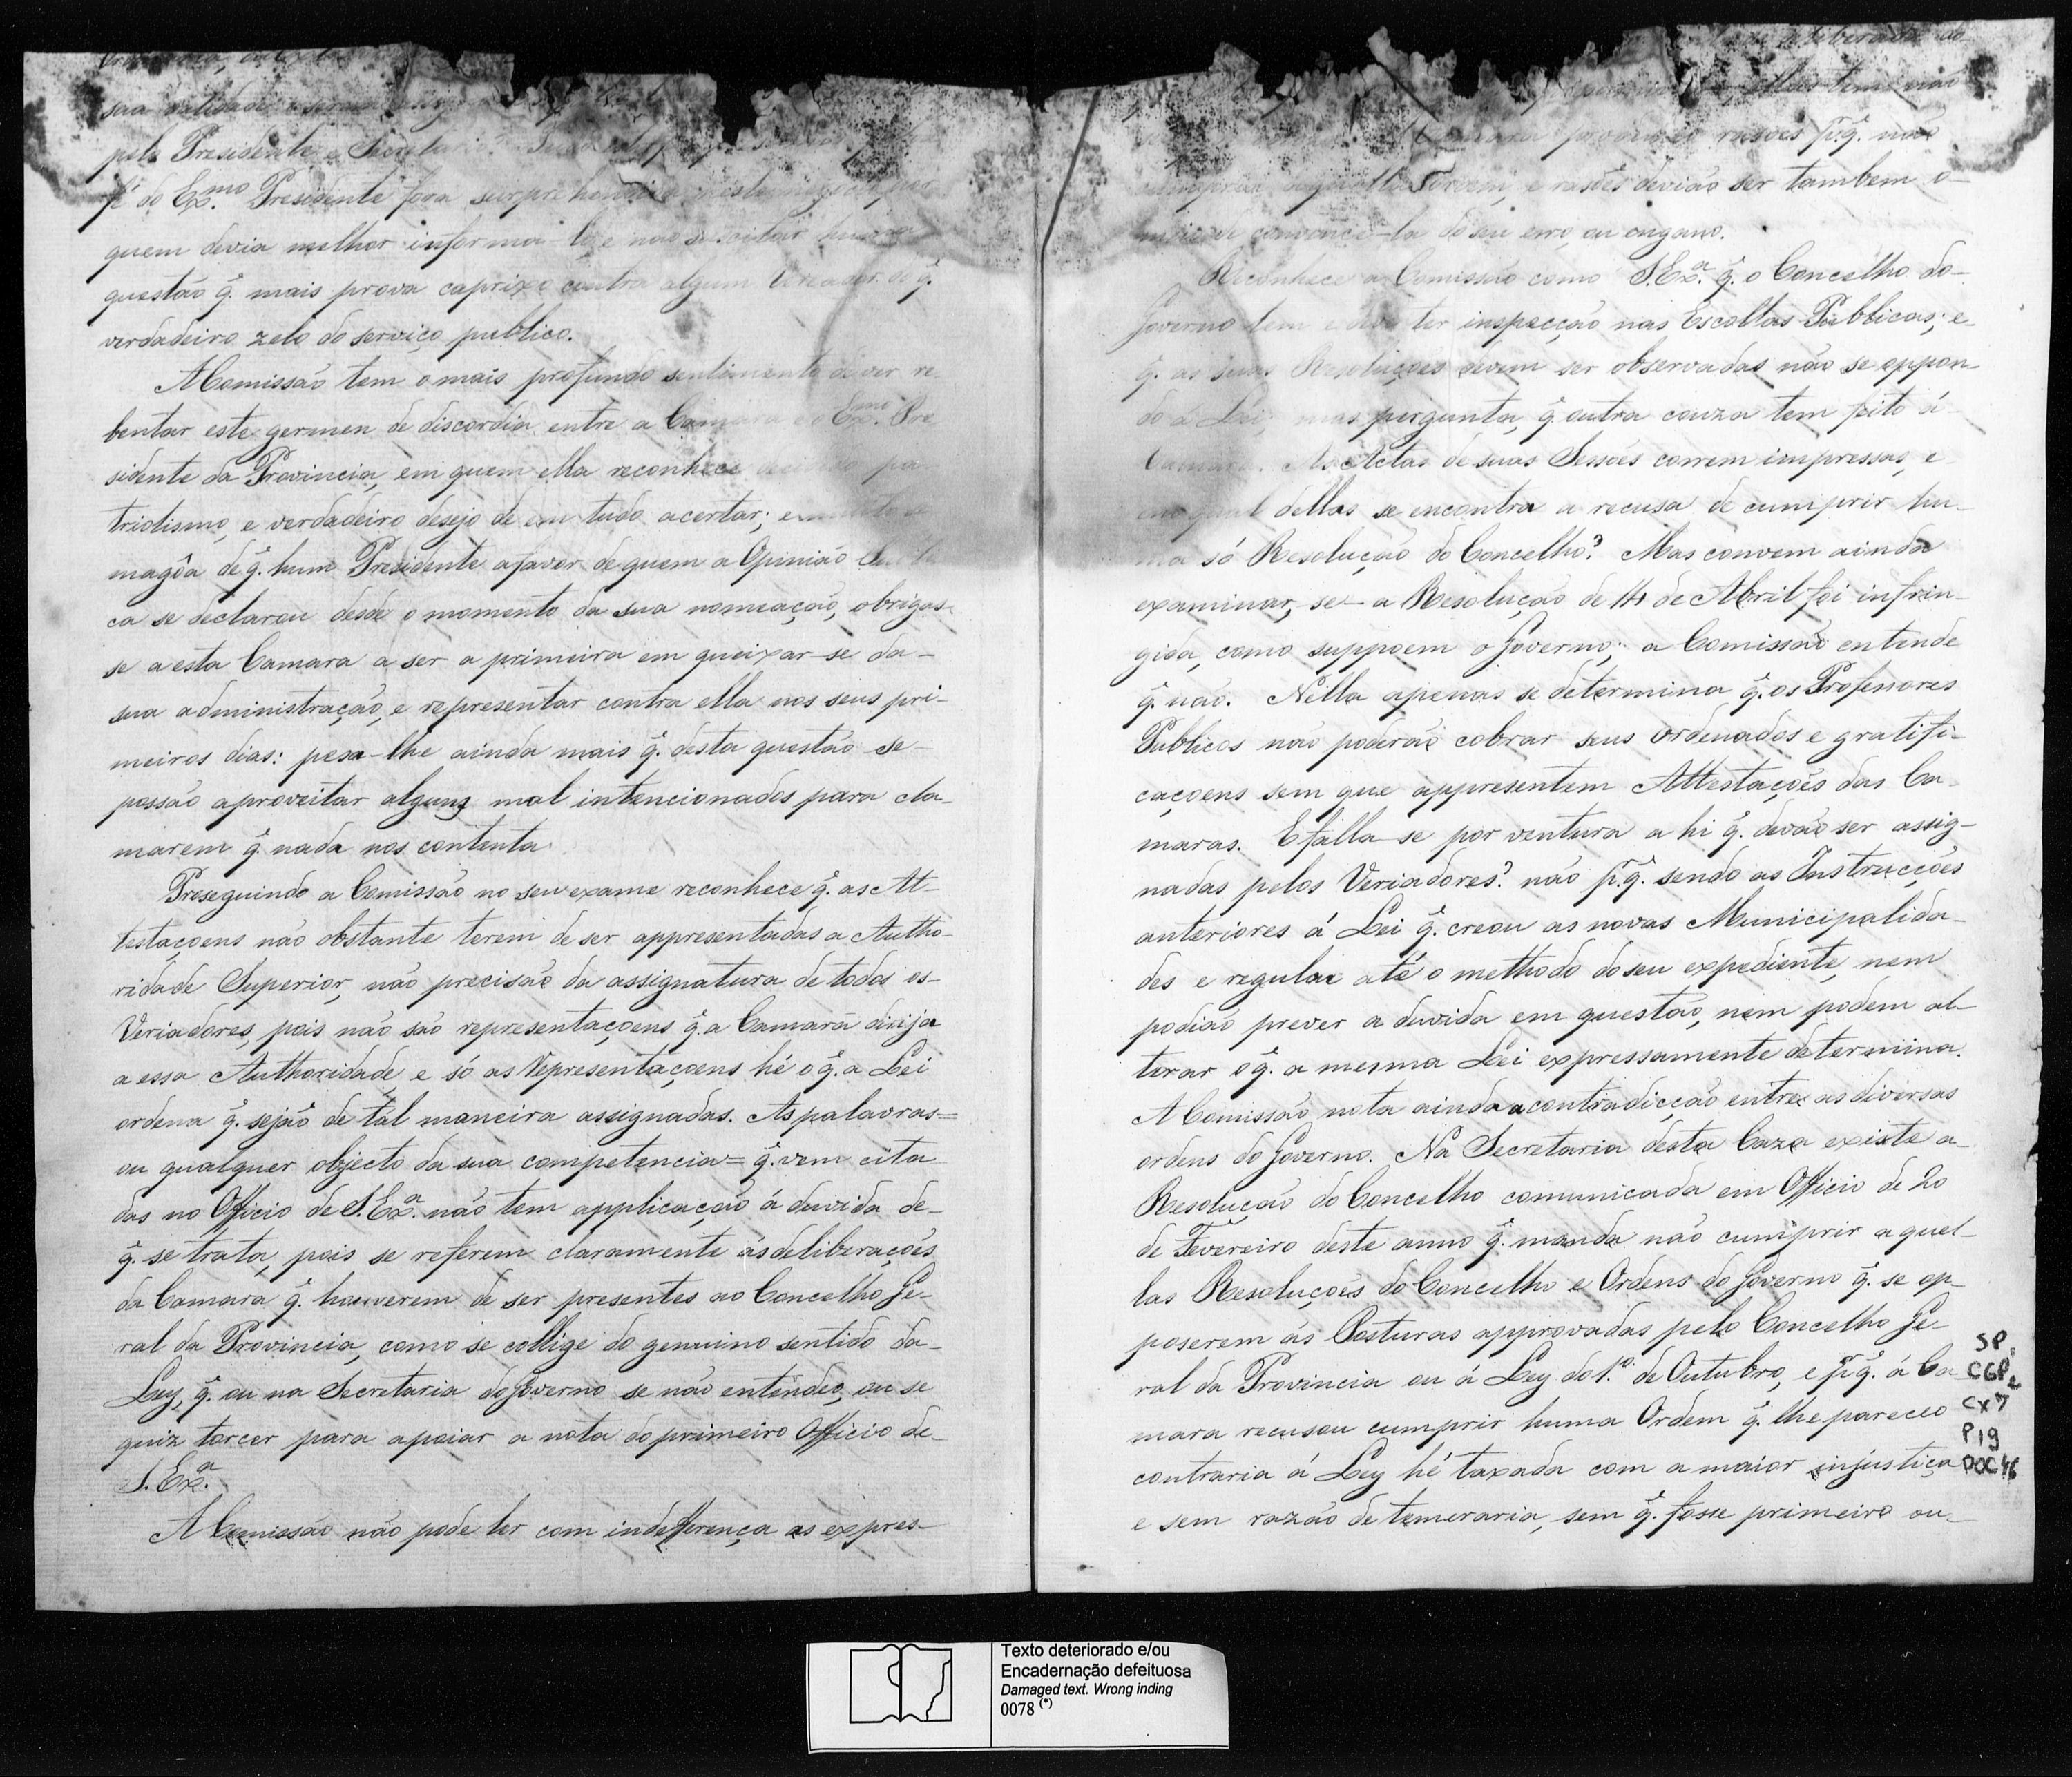 pelo Presidente e
fé do Ex.mo Presidente fora surprehendida por
quem devia melhor informa-lo, e não suscitar huma
questão q̃. mais prova caprixo contra algum Vereador do q̃.
verdadeiro zelo do serviço publico.
A Comissão tem o mais profundo sentimento de ver re
bentar este germen de discordia entre a Camara e o Ex.mo Pre
sidente da Provincia, em quem ella reconhece decidido pa
triotismo, e verdadeiro desejo de em tudo acertar; e
magôa de q̃. hum Presidente a favor de quem a Opinião Publi
ca se declarou desde o momento da sua nomeação, obrigas-
se a esta Camara a ser a primeira em queixar-se da-
sua administração, e representar contra ella nos seus pri-
meiros dias: pesa-lhe ainda mais q̃. desta questão se-
possão aproveitar alguns mal intencionados para cla-
marem q̃. nada nos contenta.
Proseguindo a Comissão no seu exame reconhece q̃. as At-
testaçoens não obstante terem de ser appresentadas a Autho-
ridade Superior, não precisão da assignatura de todos os-
Veriadores, pois não são representaçoens q̃. a Camara dirija
a essa Authoridade, e só as Representaçoens hé o q̃. a Lei
ordena q̃. sejão de tal maneira assignadas. As palavras=
ou qualquer objecto da sua competencia= q̃. vem cita
das no Officio de S. Ex.a não tem applicação á duvida de-
q̃. se trata, pois se referem claramente ás deliberações
da Camara q̃. houverem de ser presentes ao Concelho Ge-
ral da Provincia, como se collige do genuino sentido da-
Ley, q̃. ou na Secretaria do Governo se não entendeo, ou se
quiz torcer para apoiar a nota do primeiro Officio de-
S. Ex.a
A Comissão não pode ler com indefferença as expres-
razoes p.r q̃. não
e rasões devião ser tambem o-
convence-la do seu erro, ou engano.
Reconhece a Comissão como S. Ex.a q̃. o Concelho do-
Governo tem e deve ter inspecção nas Escollas Publicas; e-
q̃. as suas Resoluções devem ser observadas não se oppon-
do á Lei; mas pergunta, q̃. outra couza tem feito a
Camara. As Actas de suas Sessões correm impressas, e-
em qual dellas se encontra a recusa de cumprir hu-
ma só Resolução do Concelho? Mas convem ainda
examinar, se- a Resolução de 14 de Abril foi infrin-
gida, como suppoem o Governo; a Comissão entende
q̃. não. Nella apenas se determina q̃. os Professores
Publicos não poderão cobrar seus ordenados e gratifi-
caçoens sem que appresentem Attestações das Ca-
maras. E falla-se por ventura a hi q̃. devão ser assig-
nadas pelos Veriadores? não p.r q̃. sendo as Instrucções
anteriores á Lei q̃. creou as novas Municipalida-
des e regulae até o methodo do seu expediente, nem
podião prever a duvida em questão, nem podem al-
terar o q̃. a mesma Lei expressamente determina.
A Comissão nota ainda a contradicção entre as diversas
ordens do Governo. Na Secretaria desta Caza existe a-
Resolução do Concelho comunicada em Officio de 20
de Fevereiro deste anno q̃. manda não cumprir aquel-
las Resoluções do Concelho e Ordens do Governo q̃. se op-
poserem ás Posturas approvadas pelo Concelho Ge-
ral da Provincia ou á Ley do 1.o de Outubro, e p.r q̃. á Ca-
mara recusou cumprir huma Ordem q̃. lhe pareceo
contraria á Ley hé taxada com a maior injustiça
e sem razão de temeraria, sem q̃. fosse primeiro ou-
SP,
CGP,
CX7
P19
DOC46
Texto deteriorado e/ou
Encadernação defeituosa
Damaged text. Wrong inding
0078 (*)